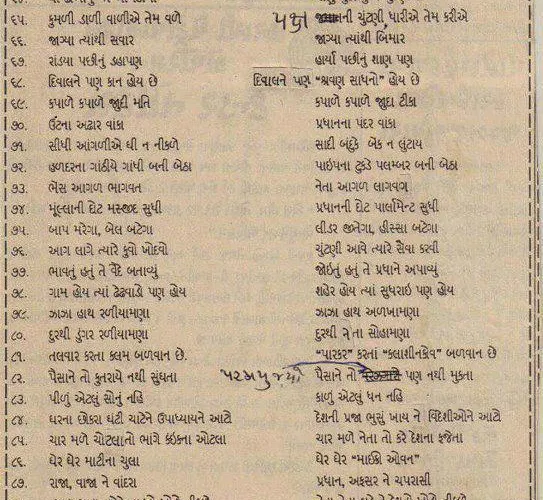 ૬૫. કુમળી ડાળી વાળીએ તેમ વળે પક્ષની ચુંટણી ધારીએ તેમ કરીએ
૬૬. જાગ્યા ત્યાંથી સવાર જાગ્યા ત્યાંથી બિમાર
૬૭. રાંડયા પછીનું ડહાપણ હાર્યા પછીનું શાણ પણ
૬૮. દિવાલને પણ કાન હોય છે દિવાલને પણ "શ્રવણ સાધનો" હોય છે
૬૯. કપાળે કપાળે જુદી મતિ કપાળે કપાળે જુદા ટીકા
૭૦. ઉંટના અઢાર વાંકા પ્રધાનના પંદર વાંકા
૭૧. સીધી આંગળીએ ઘી ન નીકળે સાદી બંદુકે બેંક ન લુંટાય
૭૨. હળદરના ગાંઠીયે ગાંધી બની બેઠા પાઇપના ટુકડે પલમ્બર બની બેઠા
૭૩. ભેંસ આગળ ભાગવત નેતા આગળ લાગવગ
૭૪. મૂલ્લાની દોટ મસ્જીદ સુધી પ્રધાનની દોટ પાર્લામેન્ટ સુધી
૭૫. બાપ મરેગા, બેલ બટેગા લીડર જીતેગા, હીસ્સા બટેગા
૭૬. આગ લાગે ત્યારે કુવો ખોદવો ચુંટણી આવે ત્યારે સેવા કરવી
૭૭. ભાવતું હતું તે વૈદે બતાવ્યું જોઇતું હતું તે પ્રધાને અપાવ્યું
૭૮. ગામ હોય ત્યાં ઢેઢવાડો પણ હોય શહેર હોય ત્યાં સુધરાઇ પણ હોય
૭૯. ઝાઝા હાથ રળીયામણા ઝાઝા હાથ અળખામણા
૮૦. દુરથી ડુંગર રળીયામણા દુરથી નેતા સોહામણા
૮૧. તલવાર કરતા કલમ બળવાન છે. "પારકર" કરતાં "કલાશીનકોવ" બળવાન છે
૮૨. પૈસાને તો કુતરાયે નથી સુંઘતા પૈસાને તો પણ નથી મુકતા
૮૩. પીળું એટલું સોનું નહિ કાળું એટલું ધન નહિ
૮૪. ઘરના છોકરા ઘંટી ચાટેને ઉપાધ્યાયને આટો દેશની પ્રજા ભુસું ખાય ને વિદેશીઓને આટો
૮૫. ચાર મળે ચોટલા તો ભાગે કઇકના ઓટલા ચાર મળે નેતા તો કરે દેશના ફજેતા
૮૬. ઘેર ઘેર માટીના ચુલા ઘેર ઘેર "માઇક્રો ઓવન"
૮૭. રાજા, વાજા ને વાંદરા પ્રધાન, અફસર ને ચપરાસી